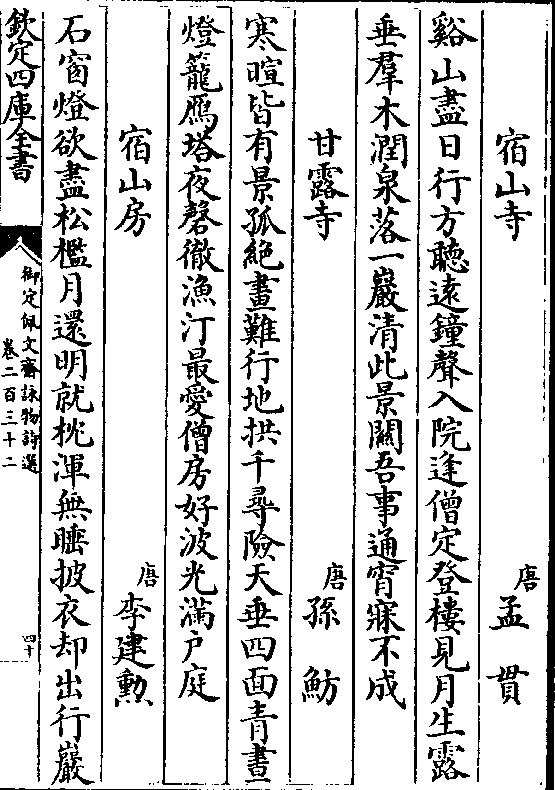 宿山寺 唐 孟貫
谿山盡日行方聽遠鐘聲入院逢僧定登樓見月生露
垂羣木潤泉落一巖清此景關吾事通宵寐不成
甘露寺 唐 孫魴
寒暄皆有景孤絶畫難行地拱千尋險天垂四面青晝
燈籠鴈塔夜磬徹漁汀最愛僧房好波光滿戸庭
宿山房 唐 李建勲
石窗燈欲盡松檻月還明就枕渾無睡披衣却出行巖
欽定四庫全書
御定佩文齋詠物詩選
卷二百三十二
四十